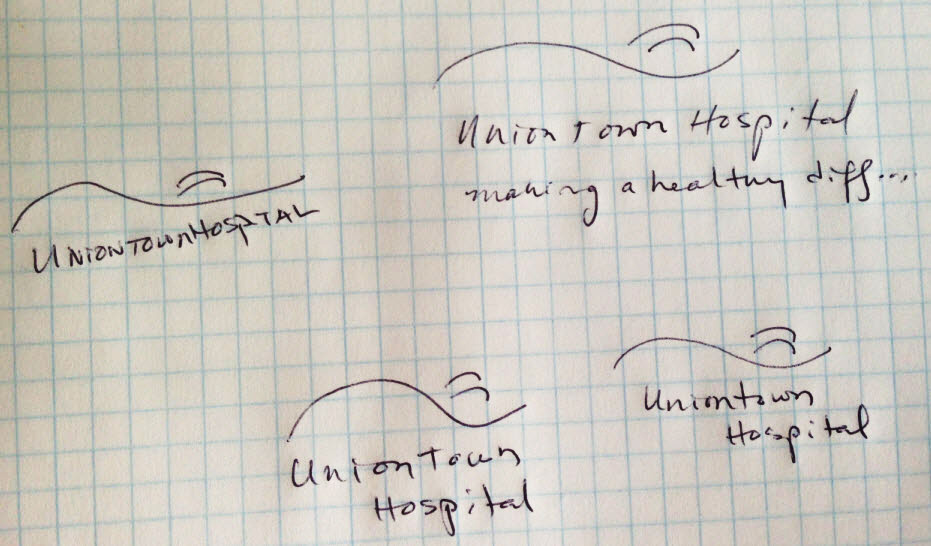 Uniontown Hospital
making a healthy diff....
UNIONTOWNHOSPITAL
Uniontown
Hospital
Uniontown
Hospital